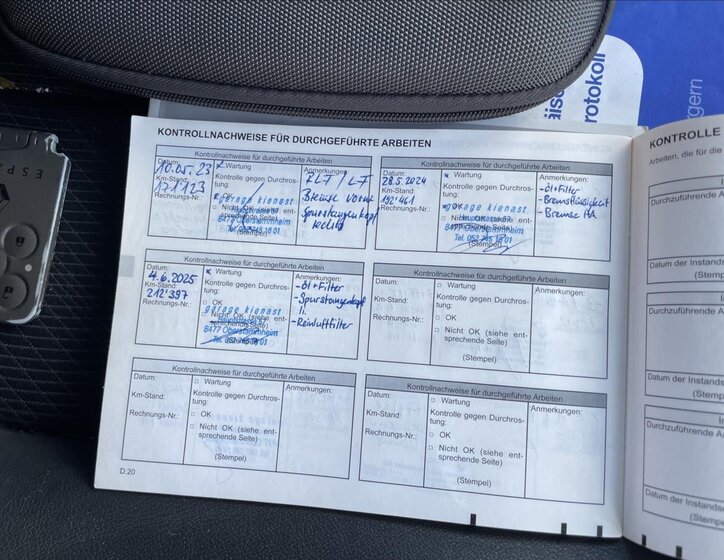 äis
rotokoll
gern
ESPA
KONTROLLNACHWEISE FÜR DURCHGEFÜHRTE ARBEITEN
Kontrollnachweise für durchgeführte Arbeiten
Datum:
10.05.23
Km-Stand:
171'123
Rechnungs-Nr.:
Wartung
Kontrolle gegen Durchros-
tung:
garage kienast
8477 Oberstammheim
Tel. 052 745 18 01
(Stempel)
Anmerkungen:
Bremse vorne
Spurstangenkopf
rechts
Kontrollnachweise für durchgeführte Arbeiten
Datum:
28.5.2024
Km-Stand:
192'461
Rechnungs-Nr.:
Wartung
Kontrolle gegen Durchros-
tung:
garage kienast
Nicht OK (siehe ent-
sprechende Seite)
8477 Oberstammheim
Tel. 052 745 18 01
(Stempel)
Anmerkungen:
-Öl+Filter
-Bremsflüssigkeit
-Bremse HA
Kontrollnachweise für durchgeführte Arbeiten
Datum:
4.6.2025
Km-Stand:
212'397
Rechnungs-Nr.:
Wartung
Kontrolle gegen Durchros-
tung:
OK
garage kienast
Nicht OK (siehe ent-
sprechende Seite)
8477 Oberstammheim
Tel. 052 745 18 01
Anmerkungen:
-Öl+Filter
-Spurstangenkopf
li.
-Reinluftfilter
Kontrollnachweise für durchgeführte Arbeiten
Datum:
Km-Stand:
Rechnungs-Nr.:
Wartung
Kontrolle gegen Durchros-
tung:
OK
Nicht OK (siehe ent-
sprechende Seite)
(Stempel)
Anmerkungen:
Kontrollnachweise für durchgeführte Arbeiten
Datum:
Km-Stand:
Rechnungs-Nr.:
Wartung
Kontrolle gegen Durchros-
tung:
OK
Nicht OK (siehe ent-
sprechende Seite)
(Stempel)
Anmerkungen:
Kontrollnachweise für durchgeführte Arbeiten
Datum:
Km-Stand:
Rechnungs-Nr.:
Wartung
Kontrolle gegen Durchros-
tung:
OK
Nicht OK (siehe ent-
sprechende Seite)
(Stempel)
Anmerkungen:
D.20
KONTROLLE
Arbeiten, die für die
Durchzuführende A
Datum der Instand
(Stem
Durchzuführende Ar
Datum der Instands
(Stem
In
Durchzuführende Arb
Datum der Instandse
(Stempe